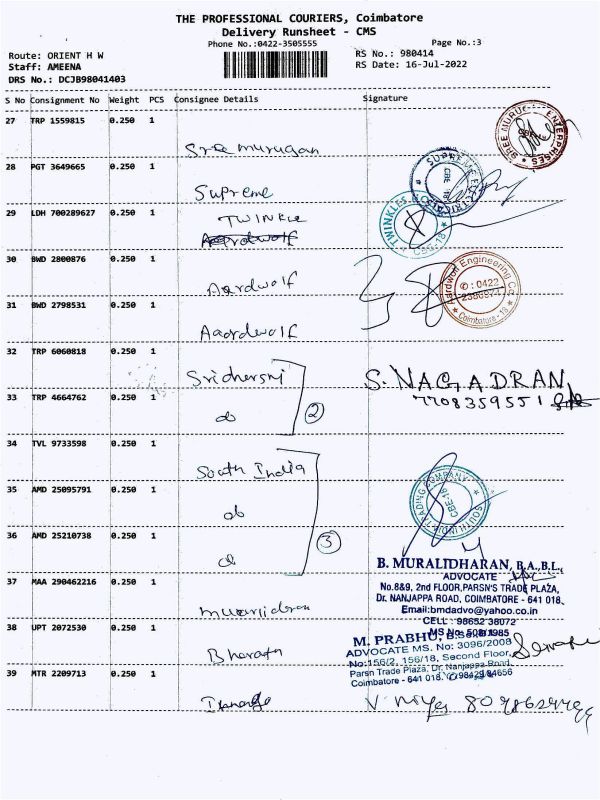 THE PROFESSIONAL COURIERS, Coimbatore
Delivery Runsheet - CMS
Phone No.:0422-3505555
Page No.:3
Route: ORIENT H W
RS No.: 980414
Staff: AMEENA
RS Date: 16-Jul-2022
DRS No.: DCJB98041403
S No Consignment No Weight PCS Consignee Details Signature
27 TRP 1559815 0.250 1
Sree murugan
SHREE MURUGAN ENTERPRISES
28 PGT 3649665 0.250 1
Supreme
SUPREME
CBE-18
29 LDH 700289627 0.250 1
TWINKLE
Aardwolf
TWINKLES
CBE-18
30 BWD 2800876 0.250 1
Aardwolf
Aardwolf Engineering Co.
✆ : 0422
Coimbatore - 18
31 BWD 2798531 0.250 1
Aaordwolf
32 TRP 6060818 0.250 1
Sridhersri
S. NAGADRAN
33 TRP 4664762 0.250 1
7708359551
do
2
34 TVL 9733598 0.250 1
South India
SOUTH INDIA TRADING COMPANY
CBE-18
35 AMD 25095791 0.250 1
do
36 AMD 25210738 0.250 1
do
3
B. MURALIDHARAN, B.A.,B.L.,
ADVOCATE
37 MAA 290462216 0.250 1
No.8&9, 2nd FLOOR,PARSN'S TRADE PLAZA,
Dr. NANJAPPA ROAD, COIMBATORE - 641 018.
Email:bmdadvo@yahoo.co.in
CELL : 98652 38072
MS No: 508/1985
38 UPT 2072530 0.250 1
Bharath
M. PRABHU,
ADVOCATE MS. No: 3096/2008
No:156/2, 156/18, Second Floor,
Parsn Trade Plaza, Dr. Nanjappa Road,
Coimbatore - 641 018.
39 MTR 2209713 0.250 1